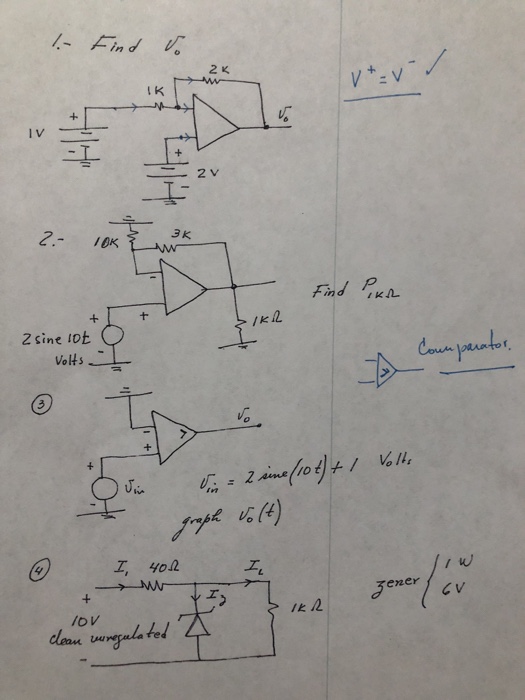 1.- Find V₀
2K
V⁺ = V⁻ ✓
1K
+
V₀
1V
-
+
2V
-
2.-
10K
3K
-
Find P₁KΩ
+
+
1KΩ
2 sine 10t
Volts
-
Comparator.
>
③
V₀
-
>
+
+
Vin
-
Vin = 2 sine(10t) + 1 Volts
graph V₀(t)
④
I₁ 40Ω I_L
zener { 1 W
6V
+
I_z
1KΩ
10V
clean unregulated
-